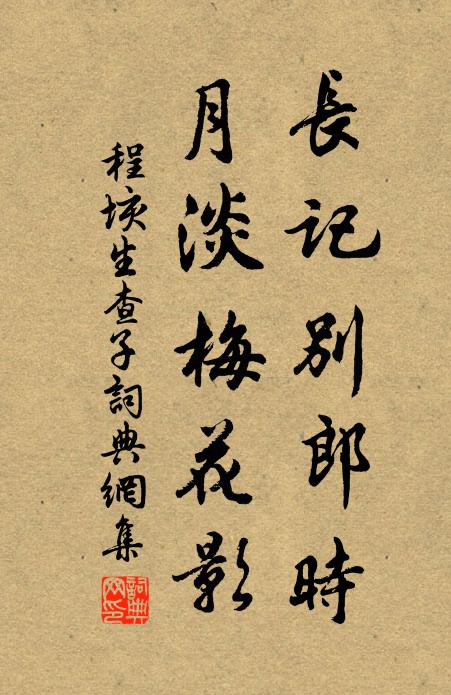 長記別郎時
月淡梅花影
程垓生查子詞典網集
詞典網印